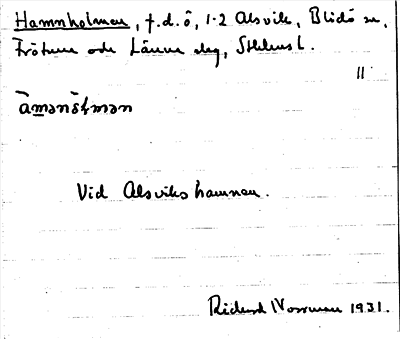 Hamnholmen, f.d. ö, 1-2 Alsvik, Blidö sn,
Frötuna och Länna slg, Sthlms l.
"
Vid Alsvikshamnen.
Rickard Norrman 1931.